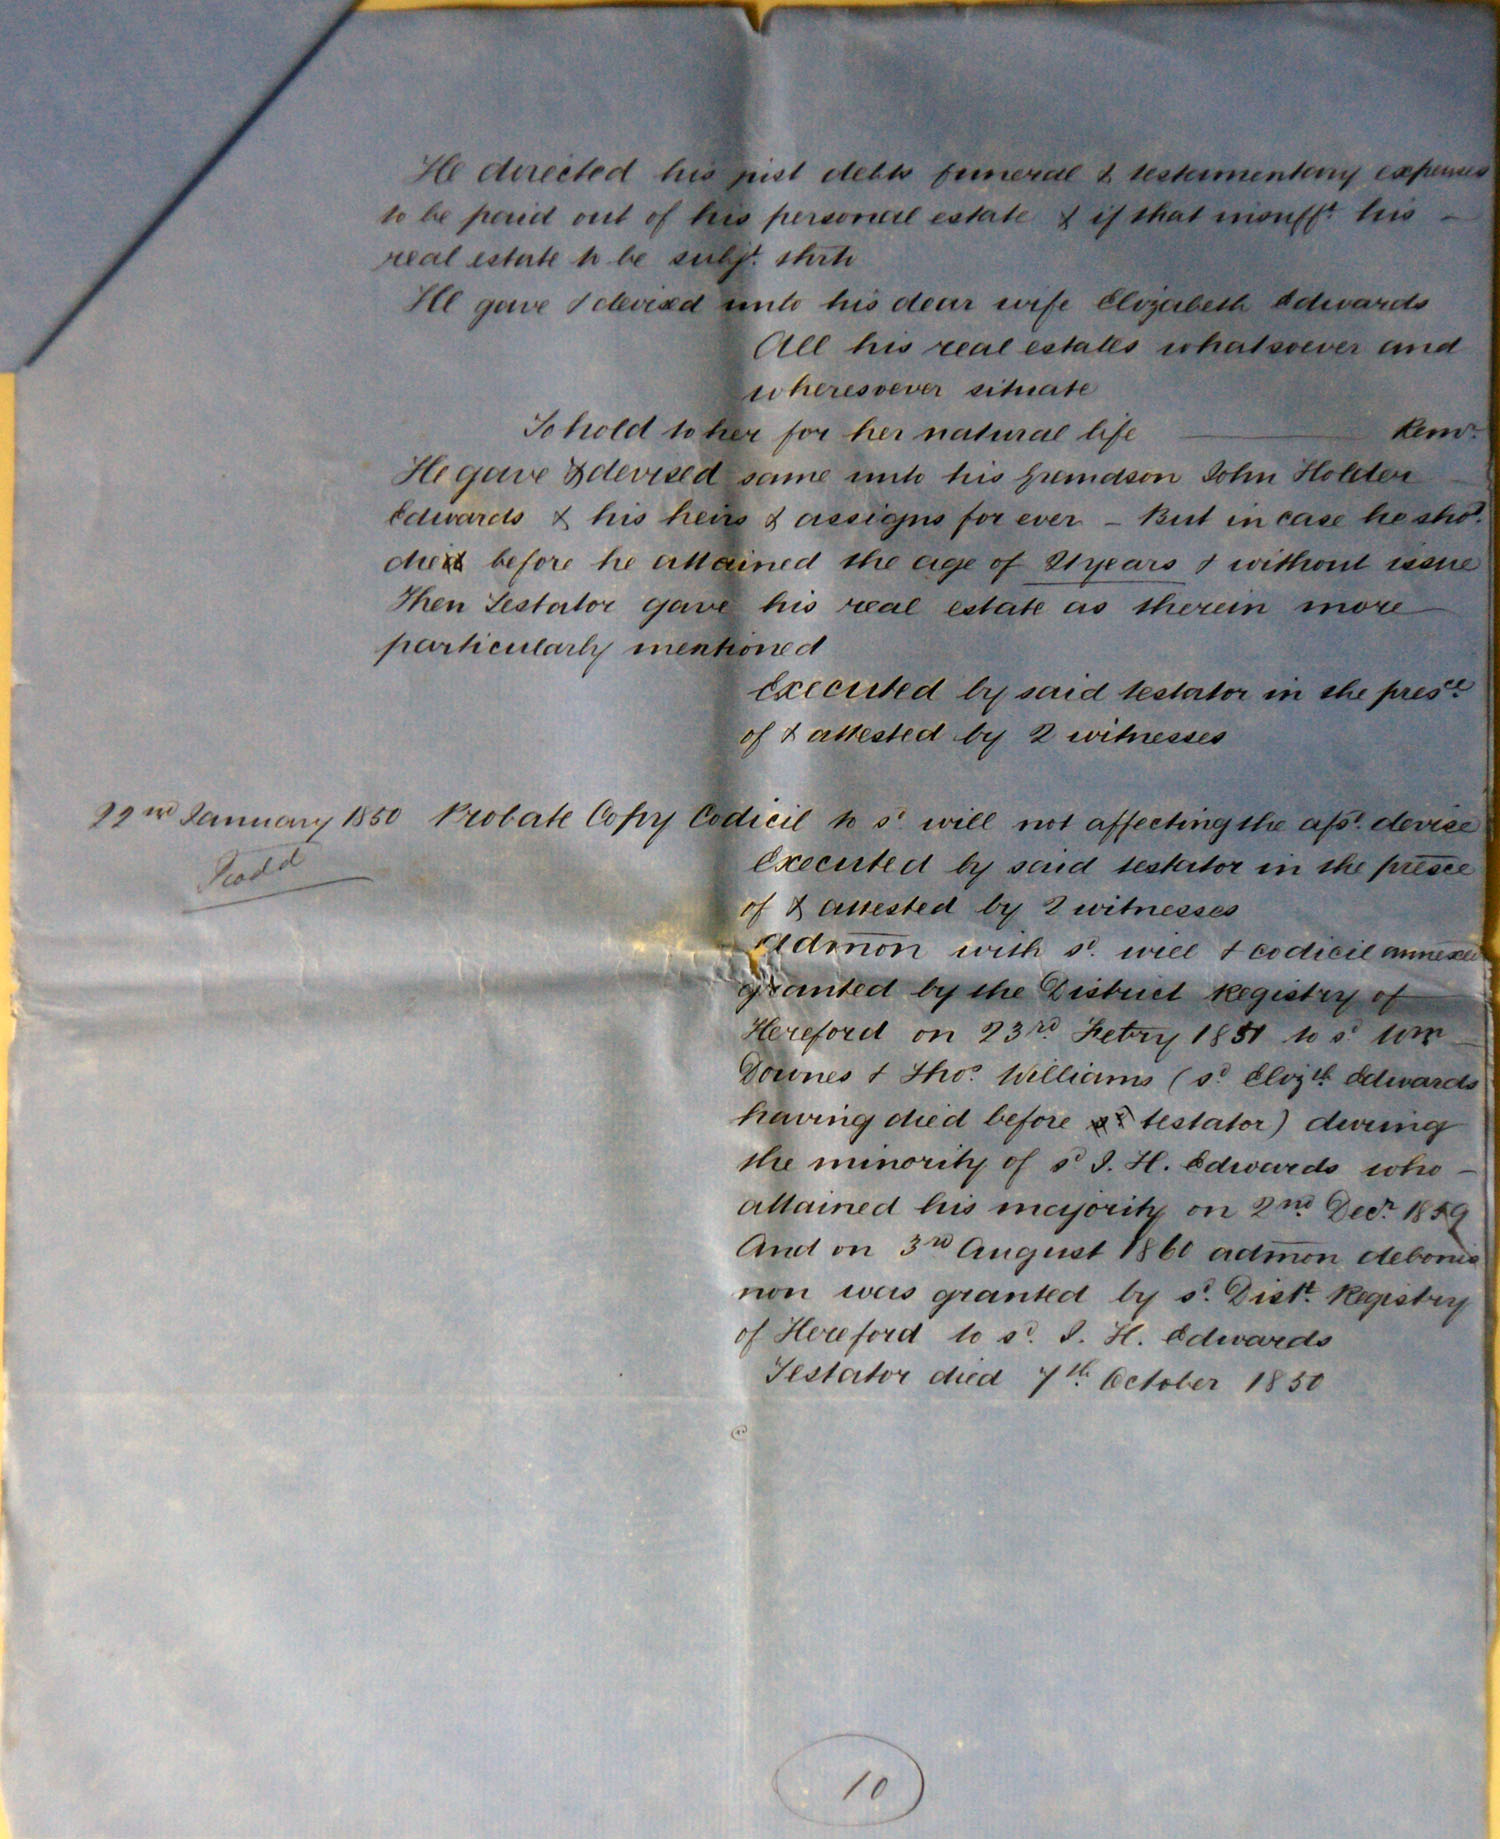 He directed his just debts funeral & testamentary expenses
to be paid out of his personal estate & if that insufft. his –
real estate to be subjt. thrto
He gave & devised unto his dear wife Elizabeth Edwards
All his real estates whatsoever and
wheresoever situate
To hold to her for her natural life ——— Remr.
He gave & devised same unto his Grandson John Holder
Edwards & his heirs & assigns for ever – But in case he shod.
die before he attained the age of 21 years & without issue
Then Testator gave his real estate as therein more
particularly mentioned
Executed by said testator in the presce.
of & attested by 2 witnesses
22nd January 1850 Probate Copy Codicil to sd. will not affecting the afsd. devise
Todd
Executed by said testator in the presce
of & attested by 2 witnesses
Admon with sd. will & codicil annexed
granted by the District Registry of
Hereford on 23rd. Febry 1851 to sd Wm
Downes & Thos. Williams (sd. Elizth. Edwards
having died before testator) during
the minority of sd J. H. Edwards who –
attained his majority on 2nd. Decr. 1859
And on 3rd August 1860 admon debonis
non was granted by sd. Distt. Registry
of Hereford to sd. J. H. Edwards
Testator died 7th. October 1850
10